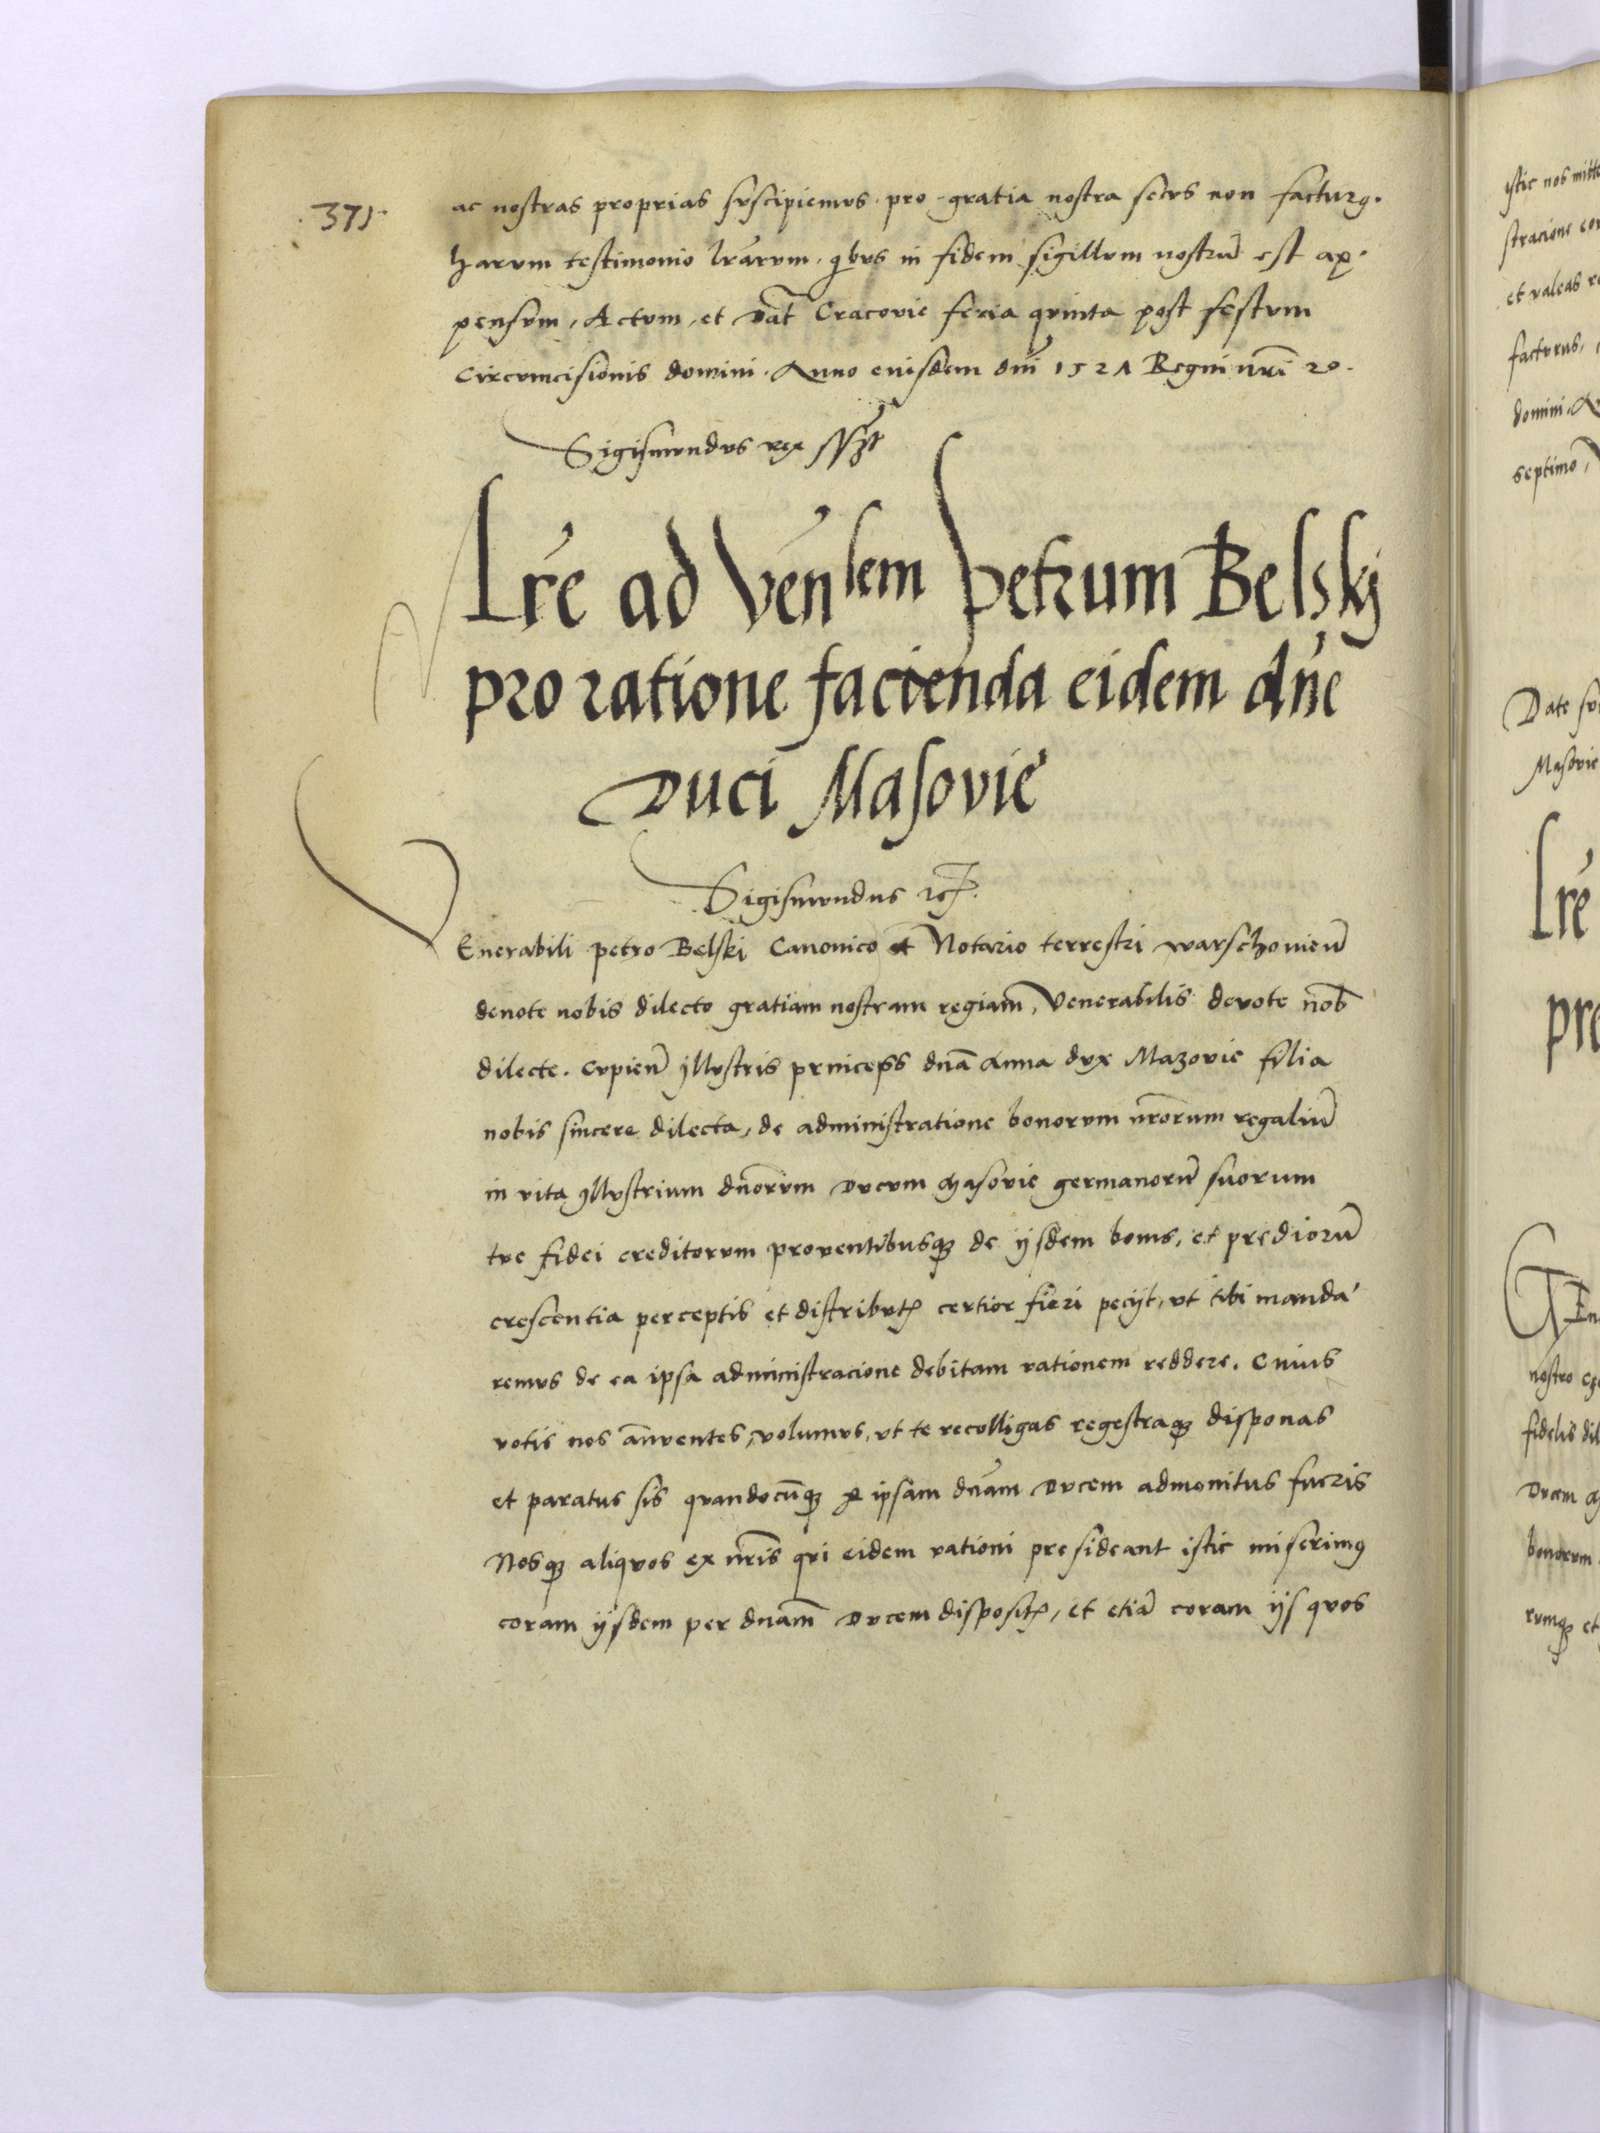 ·371·
ac nostras proprias suscipiemus · pro gratia nostra secus non facturꝯ.
harum testimonio lr̃arum · qibus in fidem sigillum nostrũ est ap·
pensum, Actum, et Dat̃ Cracovie feria quinta post festum
Circumcisionis domini · Anno eiusdem dñi 1527 Regni nr̃i 20.
Sigismundus rex sszt
Lr̃e ad Veñlem Petrum Belskj
pro ratione facienda eidem dñe
Duci Masovie
Sigismundus
Venerabili petro Belski Canonico et Notario terrestri warschovieñ
devote nobis dilecto gratiam nostram regiam̃, Venerabilis devote nob̃
dilecte. Cupieñ yllustris princeps dnã Anna dux Mazovie filia
nobis sincere dilecta, de administratione bonorum nr̃orum regaliũ
in vita yllustrium dnõrum Ducum Masovie germanorũ suorum
tue fidei creditorum proventibusqꝫ de ijsdem bonis, et prediorũ
crescentia perceptis et distributꝭ certior fieri pecijt, ut tibi manda
remus de ea ipsa administracione debitam rationem reddere. Cuius
votis nos añuentes, volumus, ut te recolligas regestraqꝫ disponas
et paratus sis quandocũqꝫ ꝑ ipsam dñam Ducem admonitus fueris
Nosqꝫ aliquos ex nr̃is qui eidem rationi presideant istic miserimꝯ
coram ijsdem per dnam̃ Ducem dispositꝭ, et etiã coram ijs quos
istic nos mitt
et valeas
facturus,
domini
septimo,
Date
Masovie
Lr̃e
pro
nostro
fidelis dil
Ducem
bonorum
rumqꝫ et